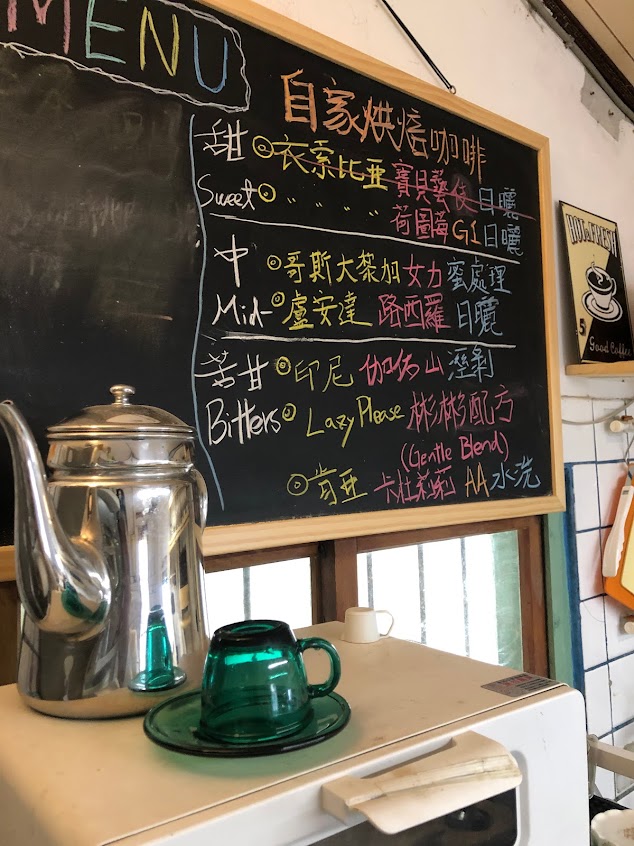 MENU
自家烘焙咖啡
甜 衣索比亞 寶貝藝伎 日曬
Sweet 〃 〃 〃 〃 荷圖莓 G1 日曬
中 哥斯大黎加 女力 蜜處理
Mid- 盧安達 路西羅 日曬
苦甘 印尼 伽佑山 溼剝
Bitters Lazy Please 彬彬配方
(Gentle Blend)
肯亞 卡杜莉莉 AA 水洗
HOT & FRESH
5
Good Coffee